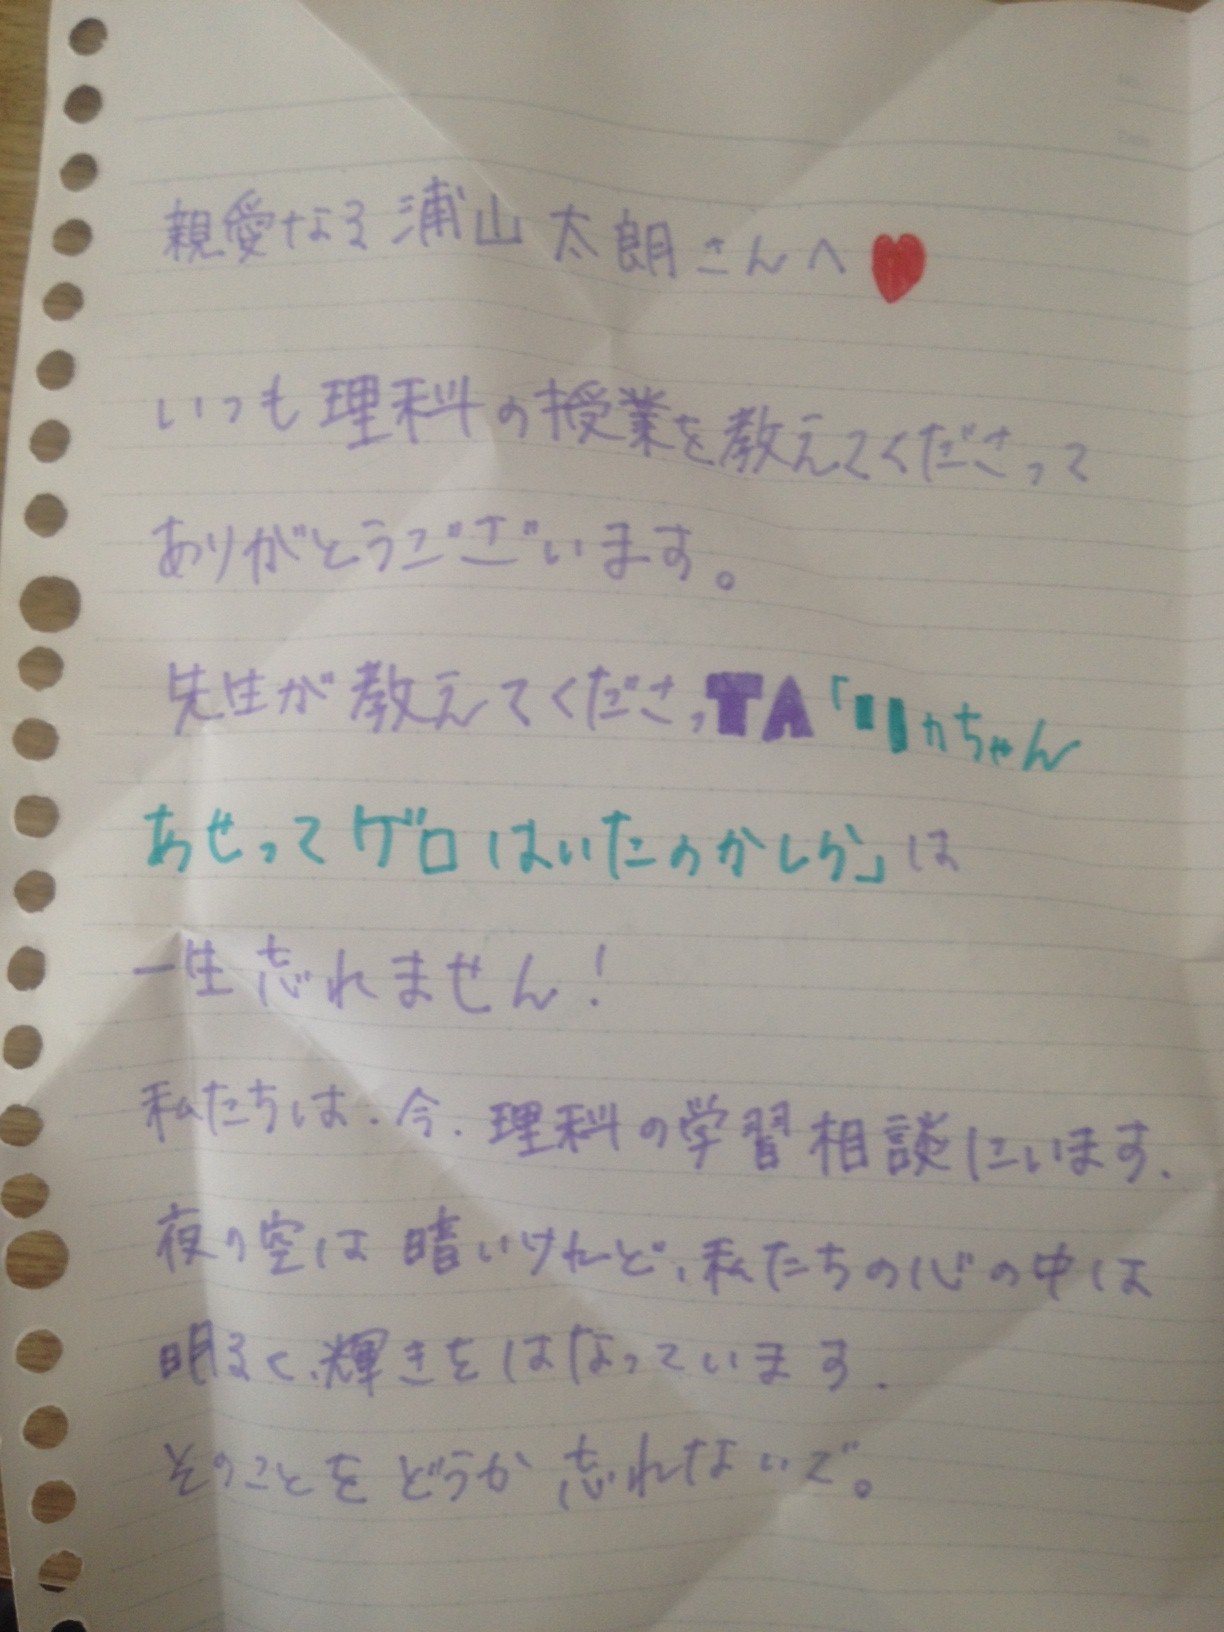 親愛なる 浦山 太朗さんへ
いつも理科の授業を教えてくださって
ありがとうございます。
先生が教えてくださっTA「リカちゃん
あせってゲロはいたのかしら」は
一生忘れません!
私たちは、今、理科の学習相談にいます.
夜の空は暗いけれど、私たちの心の中は
明るく、輝きをはなっています.
そのことをどうか忘れないで。